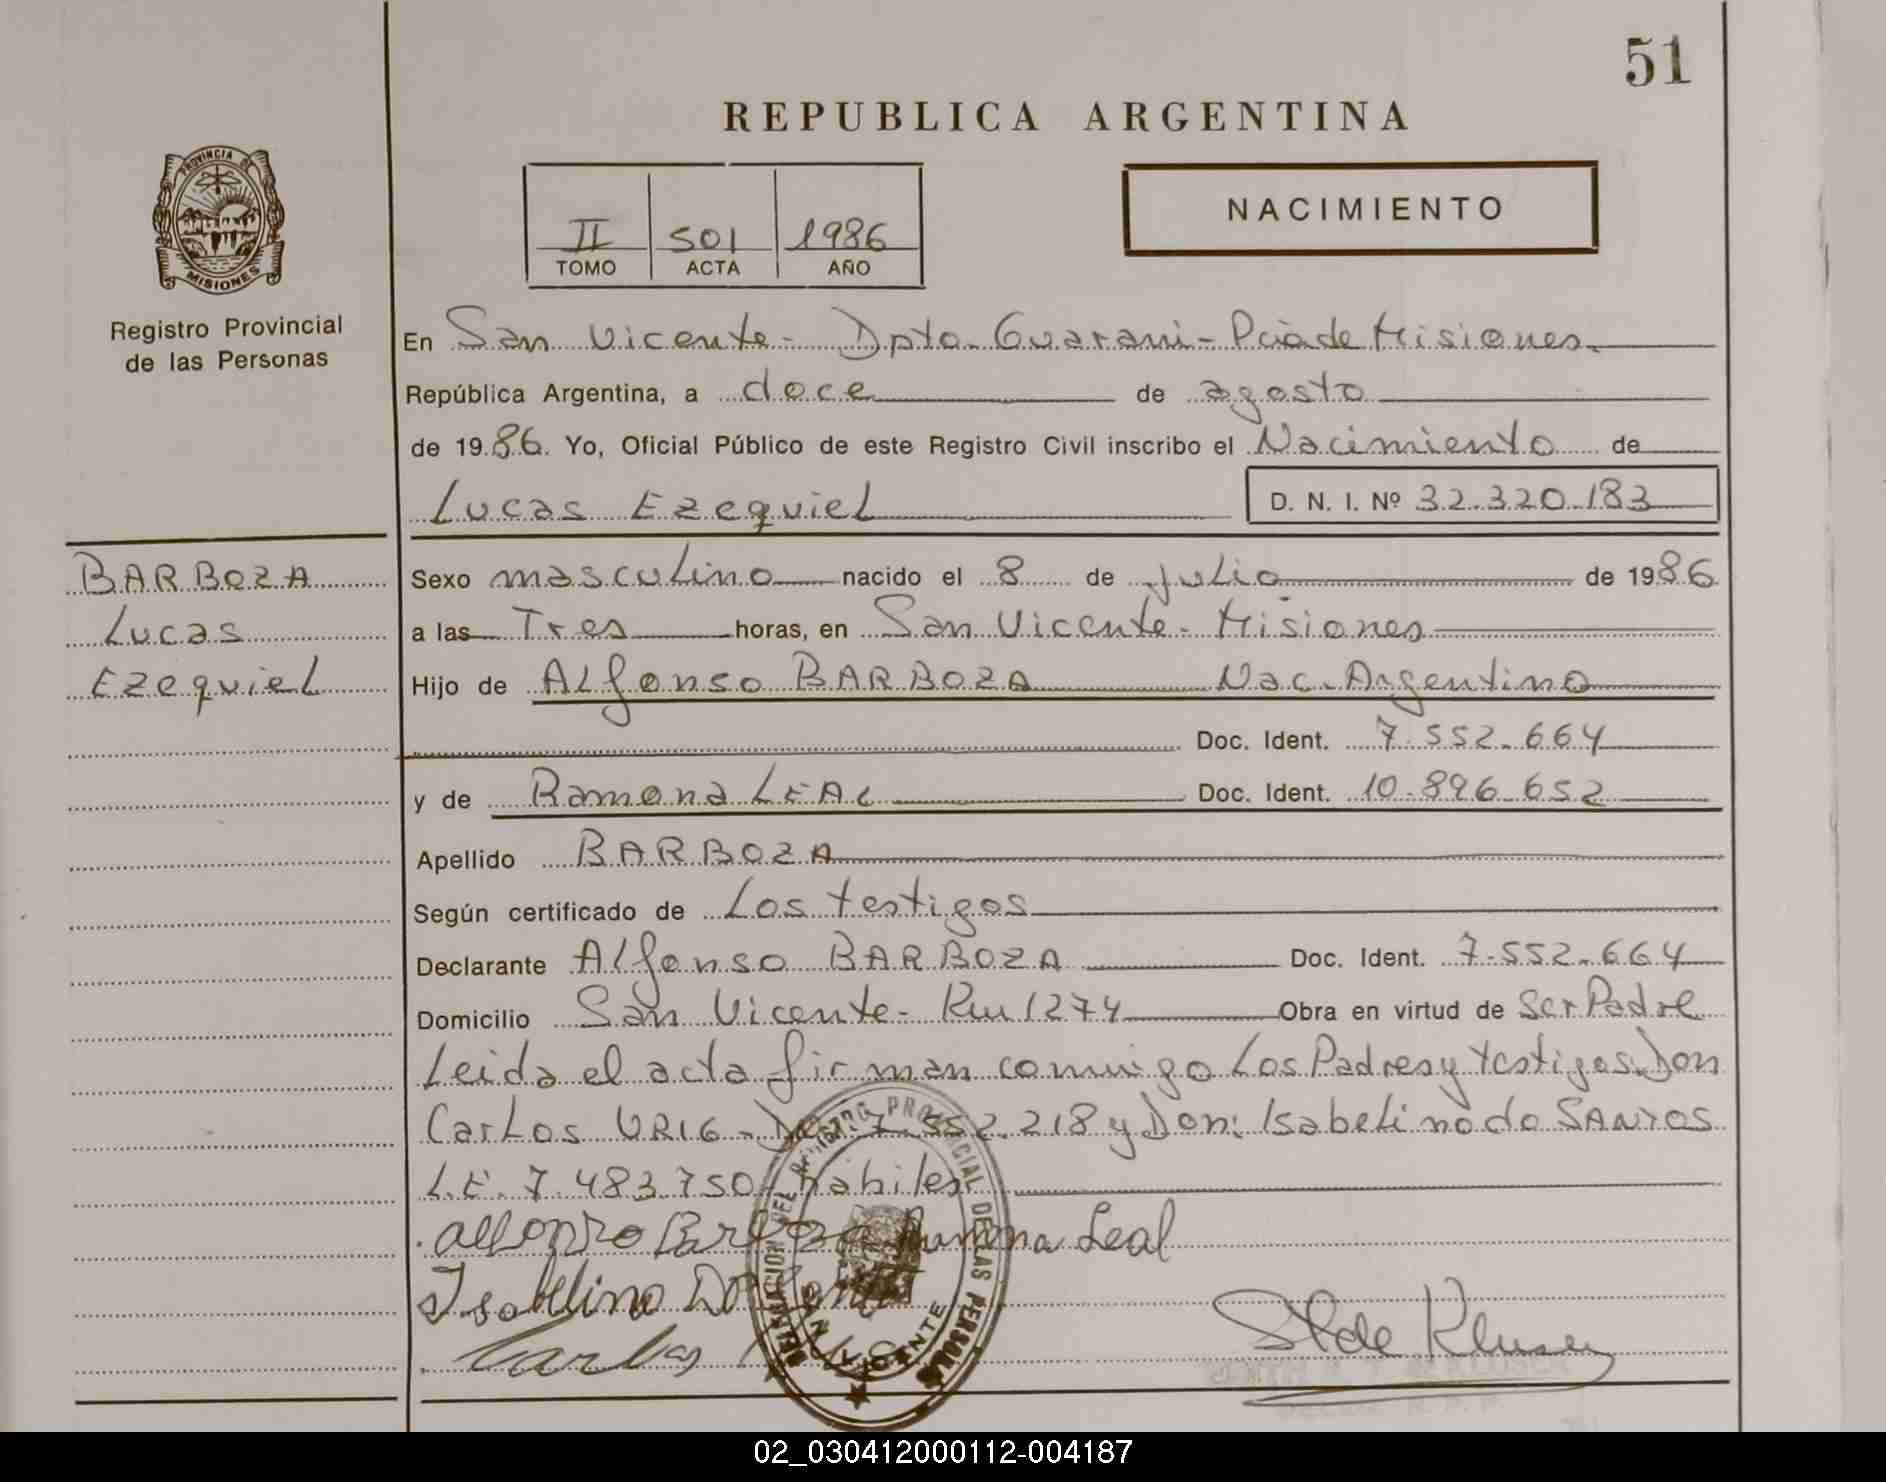 51
REPUBLICA ARGENTINA
PROVINCIA DE
MISIONES
Registro Provincial
de las Personas
II 501 1986
TOMO ACTA AÑO
NACIMIENTO
En San Vicente - Dpto. Guarani - Pcia de Misiones.
República Argentina, a doce de agosto
de 1986. Yo, Oficial Público de este Registro Civil inscribo el Nacimiento de
Lucas Ezequiel D. N. I. Nº 32.320.183
BARBOZA
Lucas
Ezequiel
Sexo masculino nacido el 8 de julio de 1986
a las Tres horas, en San Vicente - Misiones
Hijo de Alfonso BARBOZA Nac. Argentino
Doc. Ident. 7.552.664
y de Ramona LEAL Doc. Ident. 10.896.652
Apellido BARBOZA
Según certificado de Los testigos
Declarante Alfonso BARBOZA Doc. Ident. 7.552.664
Domicilio San Vicente - Km 1274 Obra en virtud de Ser Padre
Leida el acta firman conmigo Los Padres y testigos Don
Carlos URIG - 7.552.218 y Don: Isabelino do SANTOS
L.E. 7.483.750 habiles
Alfonso Barboza Ramona Leal
Isabelino Do
Carlos
REGISTRO PROVINCIAL DE LAS PERSONAS
VICENTE
02_030412000112-004187